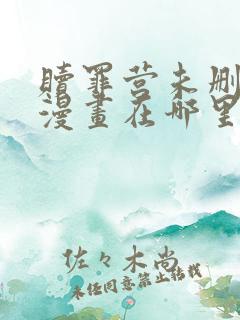 赎罪营未删
漫畫在哪里
佐々木尚
未经同意禁止转载